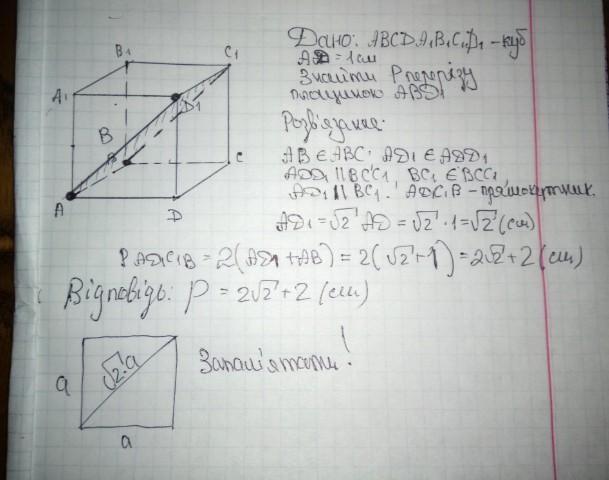 Дано: ABCDA₁B₁C₁D₁ - куб
AD = 1 см
Знайти P перерізу
площиною ABD₁
Розв'язання:
AB ∈ ABC; AD₁ ∈ ADD₁
ADD₁ || BC'C₁ BC₁ ∈ BCC₁
AD₁ || BC₁. AD₁C₁B - прямокутник.
AD₁ = √2 AD = √2 · 1 = √2 (см)
P AD₁C₁B = 2(AD₁ + AB) = 2(√2 + 1) = 2√2 + 2 (см)
Відповідь: P = 2√2 + 2 (см)
B₁
C₁
A₁
D₁
B
C
A
D
√2·a
Запам'ятати!
a
a